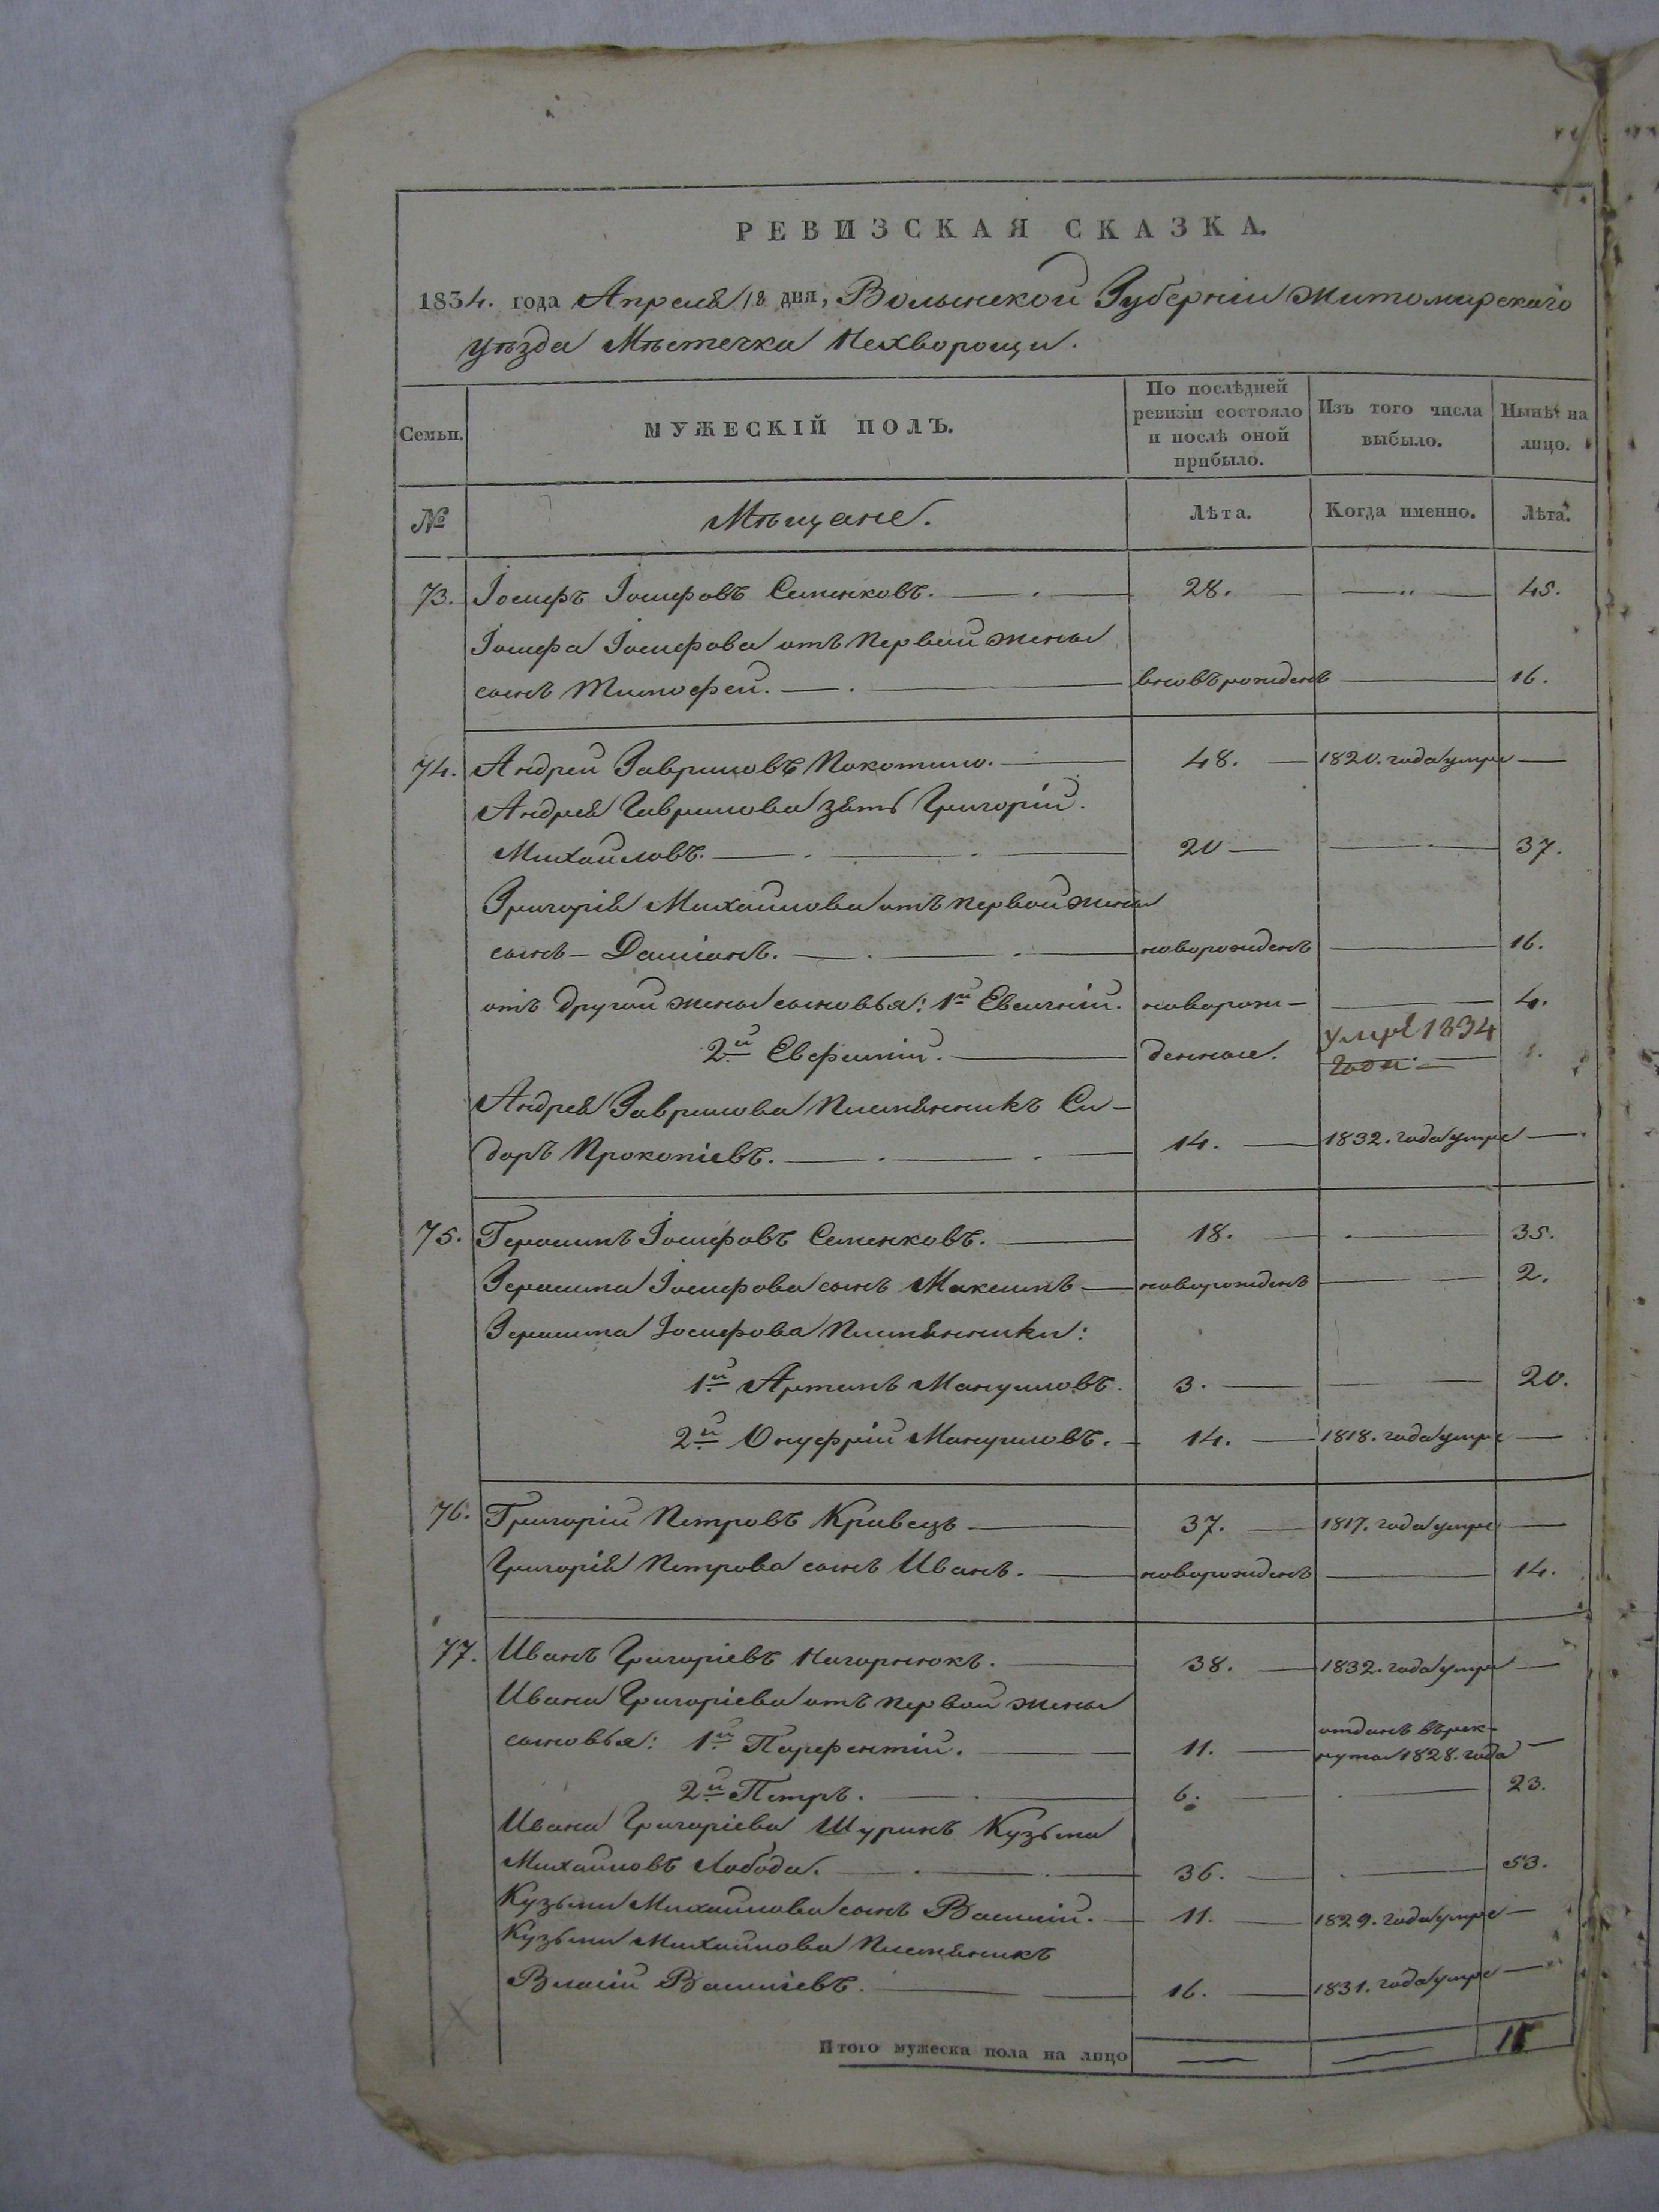 РЕВИЗСКАЯ СКАЗКА.
1834. года Апреля 18 дня, Волынской Губерніи Житомирскаго
уѣзда Мѣстечка Нехворощи.
Семьи. МУЖЕСКІЙ ПОЛЪ. По послѣдней ревизіи состояло и послѣ оной прибыло. Изъ того числа выбыло. Нынѣ на лицо.
№ Мѣщане. Лѣта. Когда именно. Лѣта.
73. Іосифъ Іосифовъ Семенковъ. 28. — „ — 45.
Іосифа Іосифова отъ первой жены
сынъ Тимофей. — вновърожденъ — 16.
74. Андрей Гавриловъ Покотило. — 48. — 1820. года умре —
Андрея Гаврилова зять Григорій
Михайловъ. — 20 — — 37.
Григорія Михайлова отъ первой жены
сынъ — Даміанъ. — новорожденъ — 16.
отъ другой жены сыновья: 1й Евсигній. новорож- — 4.
2й Евфимій. — денные. умре 1834 года — 1.
Андрея Гаврилова племянникъ Си-
доръ Прокопіевъ. — 14. — 1832. года умре —
75. Герасимъ Іосифовъ Семенковъ. — 18. — — 35.
Герасима Іосифова сынъ Максимъ — новорожденъ — 2.
Герасима Іосифова племянники:
1й Артемъ Мануиловъ. 3. — — 20.
2й Онуфрій Мануиловъ. — 14. — 1818. года умре —
76. Григорій Петровъ Кравецъ — 37. — 1817. года умре —
Григорія Петрова сынъ Иванъ. — новорожденъ — 14.
77. Иванъ Григоріевъ Нагорнюкъ. — 38. — 1832. года умре —
Ивана Григоріева отъ первой жены
сыновья: 1й Парфентій. — 11. — отданъ въ рек-
руты 1828. года —
2й Петръ. — 6. — — 23.
Ивана Григоріева Шуринъ Кузьма
Михайловъ Лобода. — 36. — — 53.
Кузьмы Михайлова сынъ Василій. — 11. — 1829. года умре —
Кузьмы Михайлова племяникъ
Власій Васильевъ. — 16. — 1831. года умре —
Итого мужеска пола на лицо — —